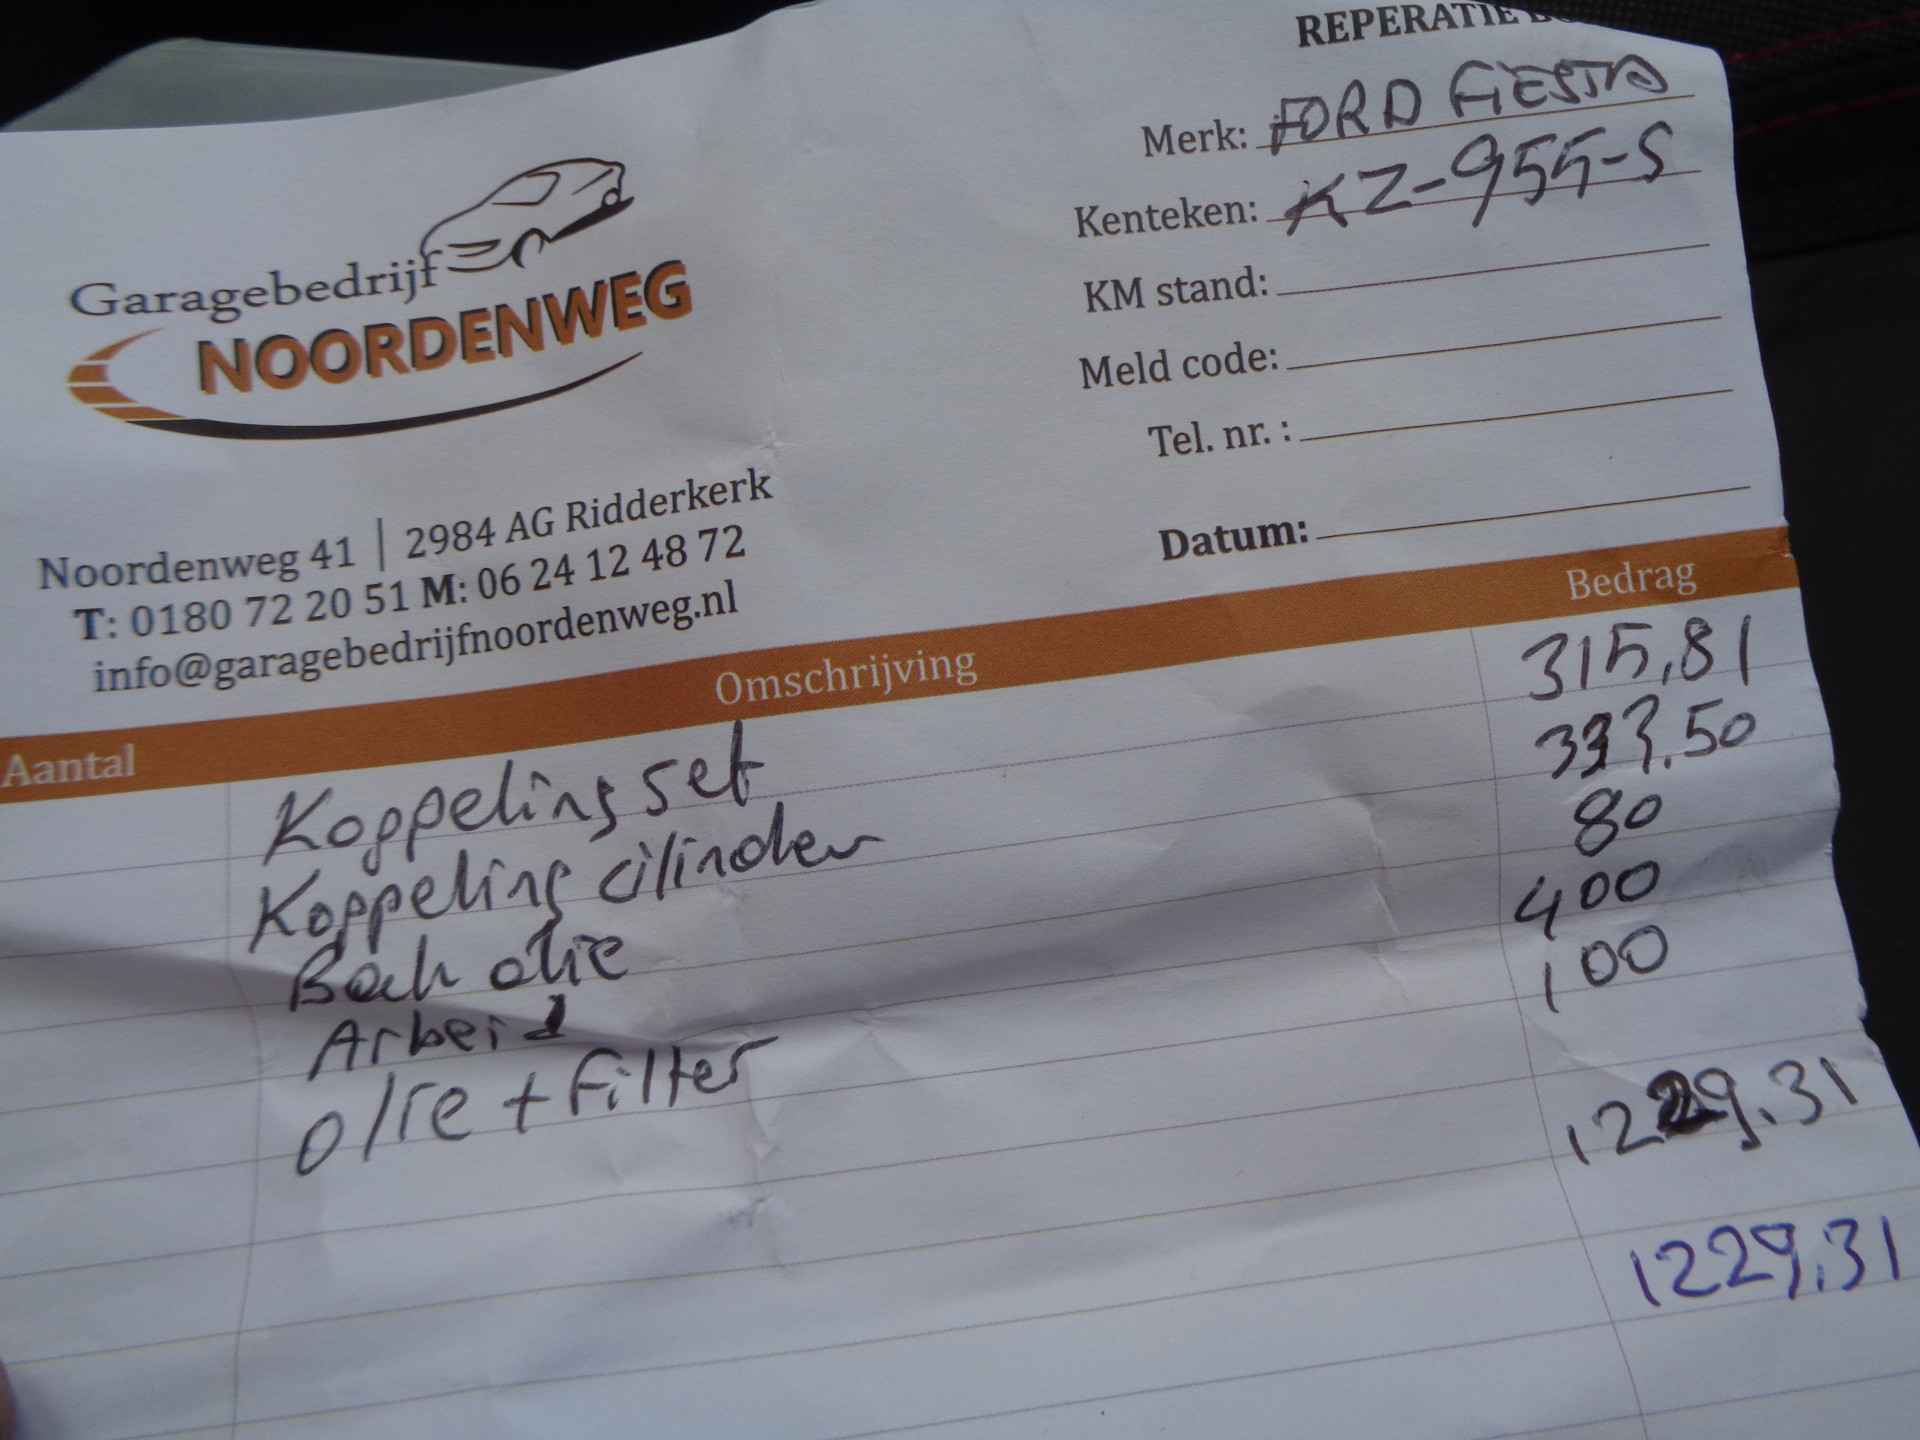 REPERATIE
Merk: FORD FiESTA
Kenteken: KZ-955-S
KM stand:
Meld code:
Tel. nr. :
Datum:
Garagebedrijf
NOORDENWEG
Noordenweg 41 | 2984 AG Ridderkerk
T: 0180 72 20 51 M: 06 24 12 48 72
info@garagebedrijfnoordenweg.nl
Aantal Omschrijving Bedrag
Koppeling set 315,81
Koppeling cilinder 333.50
Bak olie 80
Arbeid 400
olie + Filter 100
1229.31
1229.31